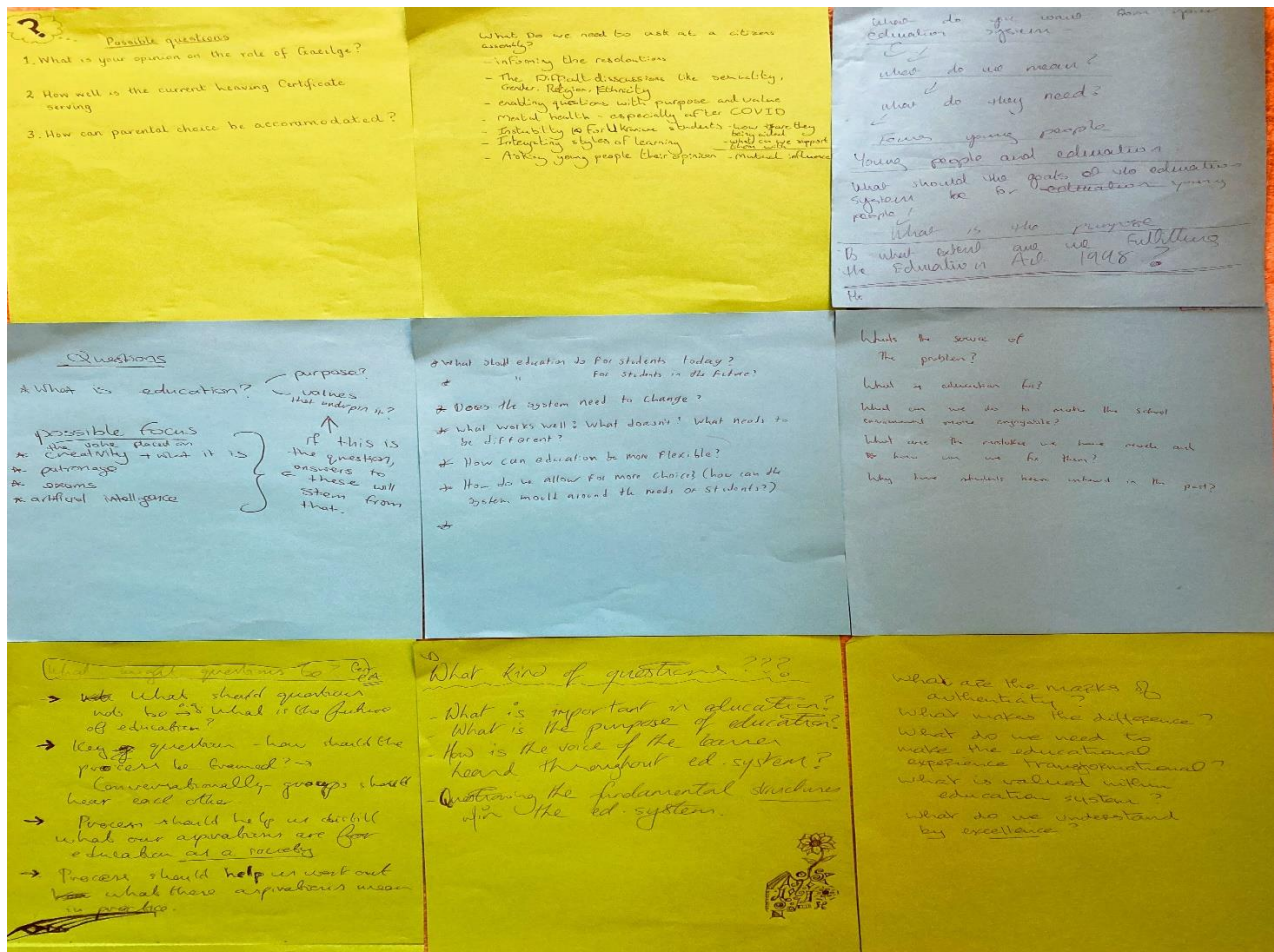 ?
Possible questions
1. What is your opinion on the role of Gaeilge?
2 How well is the current Leaving Certificate
serving
3. How can parental choice be accomodated?
What Do we need to ask at a citizens
assembly?
- informing the resolutions
- The Difficult discussions like sexuality,
Gender, Religion, Ethnicity
- enabling questions with purpose and value
- Mental health - especially after COVID
- Instability for Ukraine students - how are they
being aided
- Integrating styles of learning - what can we support
them with
- Asking young people their opinion - Mutual influence
What do we want from your
education system
what do we mean?
what do they need?
Focus young people
Young people and education.
What should the goals of the education
system be for education young
people?
What is the purpose
To what extent are we fulfilling
the Education Act 1998?
He
Questions
* What is education? purpose?
values
that underpin it?
possible focus
the value placed on
* creativity + what it is
* patronage
* exams
* artificial intelligence
if this is
the question,
answers to
these will
stem from
that.
* What shall education do for students today?
* " for students in the future?
* Does the system need to change?
* What works well? What doesn't? What needs to
be different?
* How can education be more flexible?
* How do we allow for more choice? (how can the
system mould around the needs of students?)
*
Whats the source of
the problem?
What is education for?
What can we do to make the school
environment more enjoyable?
What are the mistakes we have made and
how can we fix them?
Why have students been in the past?
What might questions be?
→ What should questions
not be → What is the future
of education?
→ Key question - how should the
process be framed? →
Conversationally - groups should
hear each other
→ Process should help us distill
what our aspirations are for
education as a society
→ Process should help us work out
what these aspirations mean
in practice.
What kind of questions ???
- What is important in education?
What is the purpose of education?
- How is the voice of the learner
heard throughout ed. system?
- Questioning the fundamental structures
w/in the ed. system.
What are the marks of
authenticity?
What makes the difference?
What do we need to
make the educational
experience transformational?
What is valued within
education system?
What do we understand
by excellence?